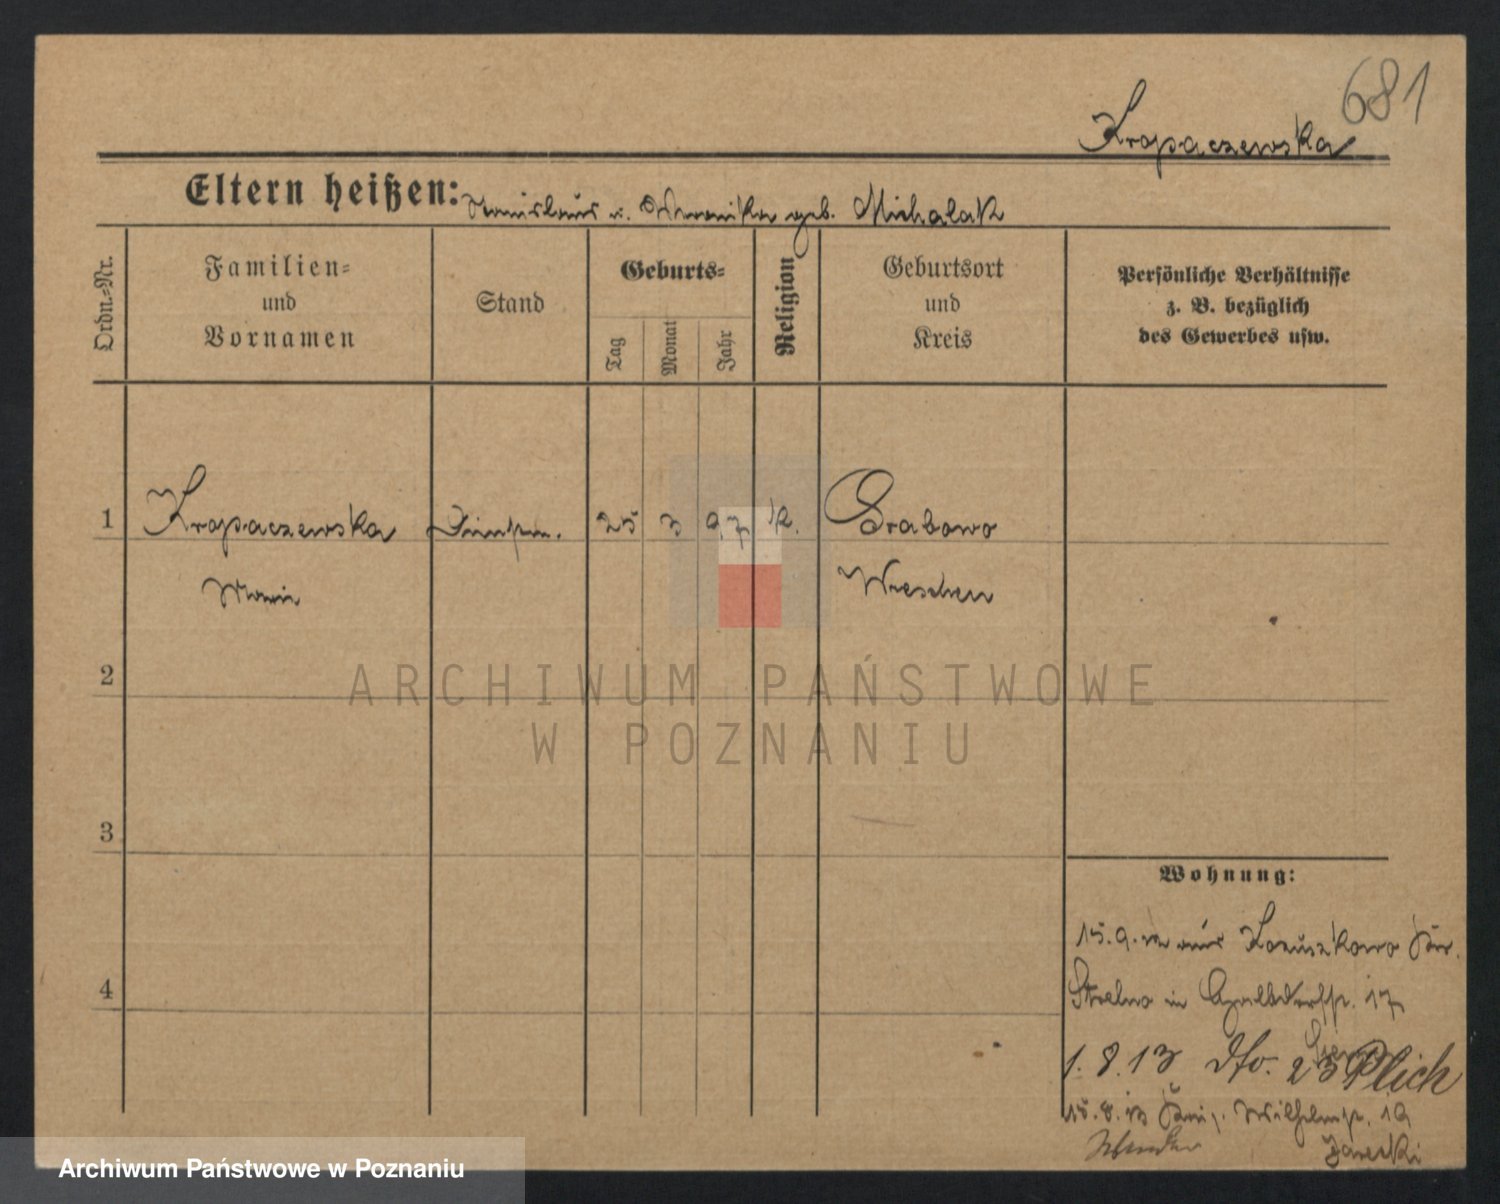 681
Kropaczewska
Eltern heißen: Stanislaus u. Veronika geb. Michalak
Ordn.-Nr.
Familien-
und
Vornamen
Stand
Geburts-
Tag
Monat
Jahr
Religion
Geburtsort
und
Kreis
Persönliche Verhältnisse
z. B. bezüglich
des Gewerbes usw.
1 Kropaczewska 25 3 97 k. Grabowo
Marie Wreschen
2
ARCHIWUM PAŃSTWOWE
W POZNANIU
3
Wohnung:
15.9. aus Kozuszkowo Kr.
4
Strelno in 17
1.8.13 dto. 23 Plich
15.8.13 Wilhelmstr. 19
Jarecki
Archiwum Państwowe w Poznaniu